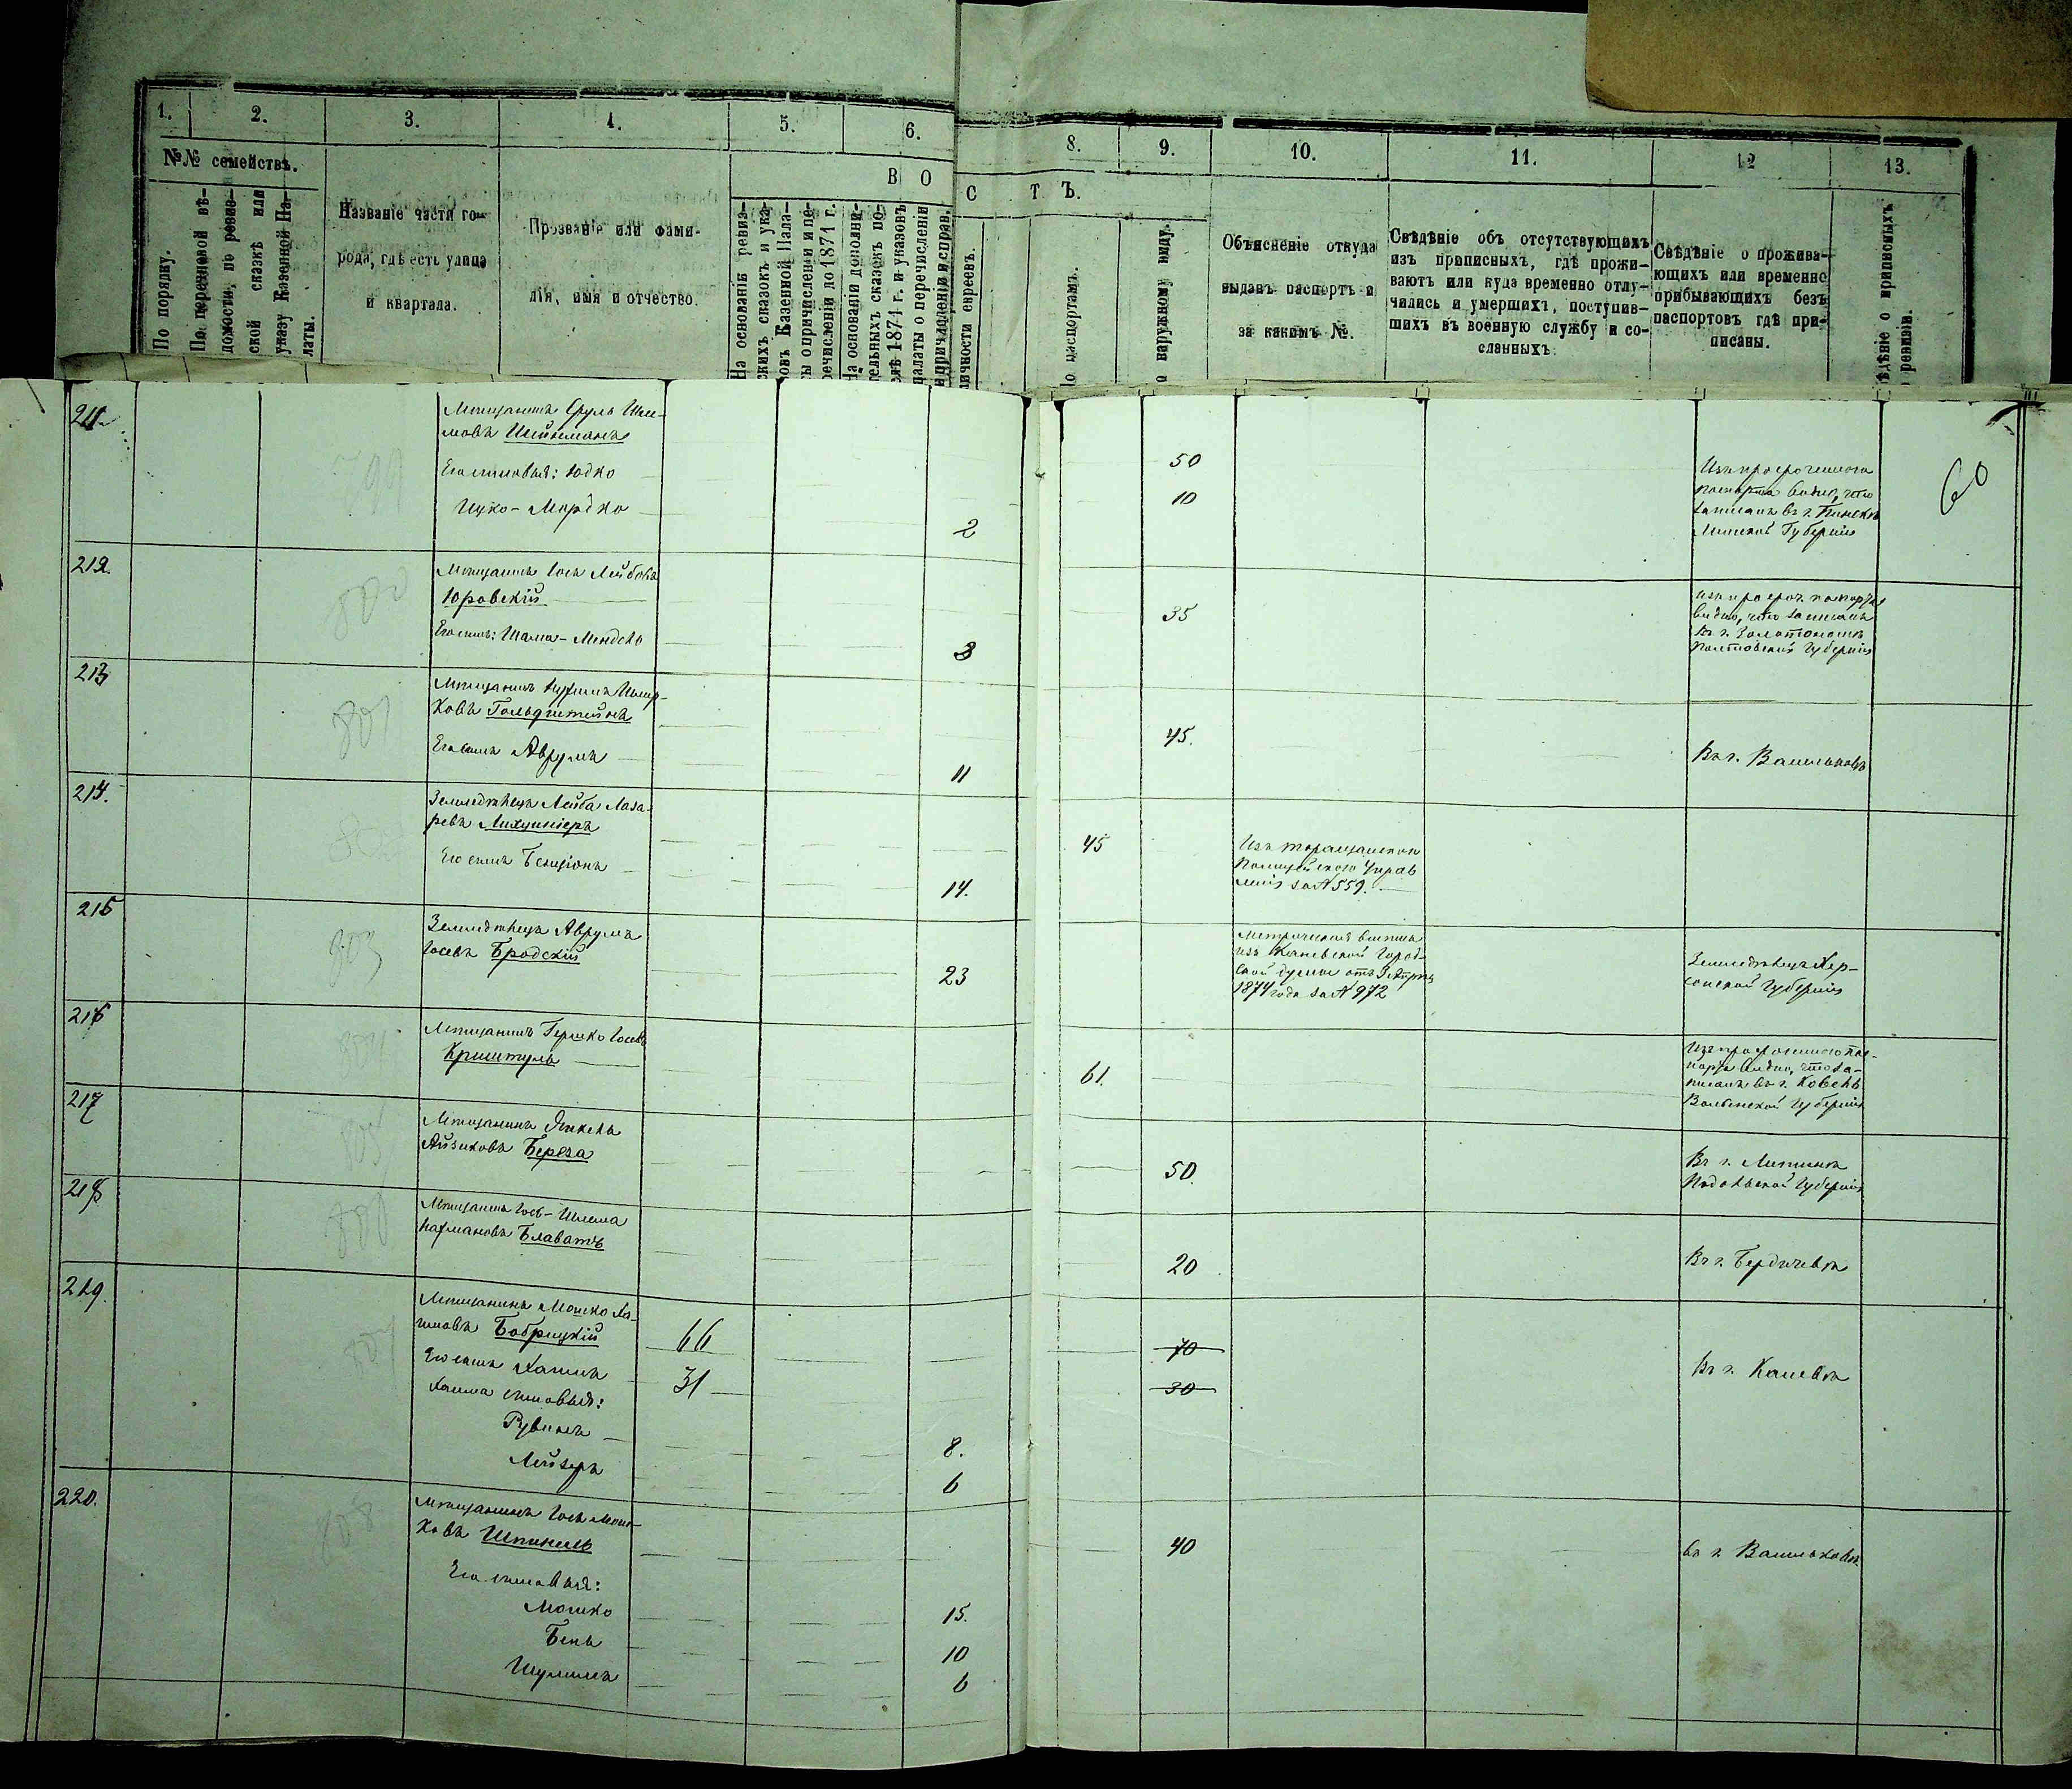 1. 2. 3. 4. 5. 6.
№№ семействъ.
По порядку.
По перечневой вѣ-
домости, по ревиз-
ской сказкѣ или
указу Казенной Па-
латы.
Названіе части го-
рода, гдѣ есть улица
и квартала.
Прозваніе или фами-
лія, имя и отчество.
В О
На основаніи ревиз-
скихъ сказокъ и ука-
зовъ Казенной Пала-
ты о причисленіи и пе-
речисленіи до 1871 г.
На основаніи дополни-
тельныхъ сказокъ по-
слѣ 1871 г. и указовъ
палаты о перечисленіи
и причисленіи и справ.
8. 9. 10. 11. 12 13.
С Т Ъ.
личности евреевъ.
По паспортамъ.
о наружному виду.
Объясненіе откуда
выданъ паспортъ и
за какимъ №.
Свѣдѣніе объ отсутствующихъ
изъ приписныхъ, гдѣ прожи-
ваютъ или куда временно отлу-
чились и умершихъ, поступив-
шихъ въ военную службу и со-
сланныхъ.
Свѣдѣніе о прожива-
ющихъ или временно
прибывающихъ безъ
паспортовъ гдѣ при-
писаны.
ѣдѣніе о приписныхъ
ревизіи.
60
211.
799
Мѣщанинъ Сруль
мовъ Шейнманъ
50
Его сыновья: Юдко
10
Ицко-Мордко
2
Изъ просроченнаго
паспорта видно, что
записанъ въ г. Пинскѣ
Минской Губерніи
212.
800
Мѣщанинъ Іось Лейбовъ
Юровскій
35
Его сынъ: Шама-Мендель
3
Изъ просроч. паспорта
видно, что записанъ
въ г. Золотоношѣ
Полтавской Губерніи
213
801
Мѣщанинъ
ковъ Гольдштейнъ
45.
Его сынъ Аврумъ
11
Въ г. Васильковѣ
214.
802
Земледѣлецъ Лейба Лаза-
ревъ
45
Его сынъ Бенціонъ
14.
Изъ Таращанскаго
Полицейскаго Управ
ленія за № 559.
215
803
Земледѣлецъ Аврумъ
Іосевъ Бродскій
23
Метрическая выписка
изъ Каневской Город-
ской думы отъ
1874 года за № 972
Земледѣлецъ Хер-
сонской Губерніи
216
804
Мѣщанинъ Гершко Іосевъ
Криштуль
61.
Изъ просроченнаго пас-
порта видно, что за-
писанъ въ г. Ковель
Волынской Губерніи
217
805
Мѣщанинъ Янкель
Айзиковъ Береза
50.
Въ г. Литинѣ
Подольской Губерніи
218
806
Мѣщанинъ Іось-Шлема
Нахмановъ Блаватъ
20
Въ г. Бердичевѣ
219.
807
Мѣщанинъ Мошко Ха-
имовъ Бобрицкій
66
70
Его сынъ Хаимъ
31
30
Въ г. Каневѣ
Хаима сыновья:
Рувинъ
8.
Лейзеръ
6
220.
808
Мѣщанинъ Іось Мош-
ковъ Шпинель
40
въ г. Васильковѣ
Его сыновья:
Мошко
15.
Бень
10
Шулимъ
6